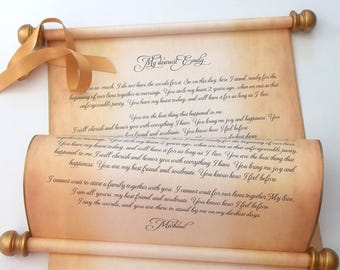 My dearest Emily,
so much. I do not have the words for it. So on this day, here I stand, ready for the
beginning of our lives together in marriage. You stole my heart 2 years ago, when we met at that
unforgettable party. You have my heart today, and will have it for as long as I live.
You are the best thing that happened to me.
I will cherish and honor you with everything I have. You bring me joy and happiness. You
best friend and soulmate. You know how I feel before
happened to me. I will cherish and honor you with everything I have. You bring me joy and
happiness. You are my best friend and soulmate. You know how I feel before
I cannot wait to start a family together with you. I cannot wait for our lives together. My love,
I am all yours. my best friend and soulmate. You know how I feel before
I say the words, and you are there to stand by me on my darkest days.
Michael